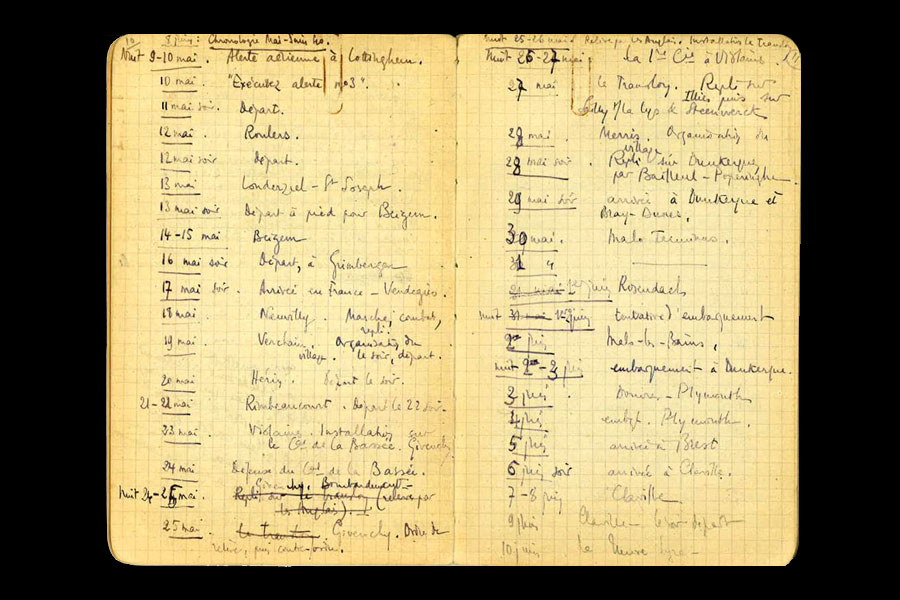 10
8 juin : Chronologie Mai-Juin 40.
Nuit 9-10 mai. Alerte aérienne à Lottinghem.
10 mai. "Exécutez alerte n°3".
11 mai soir. Départ.
12 mai. Roulers.
12 mai soir départ.
13 mai Londerzeel - St Joseph.
13 mai soir Départ à pied pour Beigem.
14-15 mai Beigem
16 mai soir Départ, à Grimbergen
17 mai soir. Arrivée en France - Vendegies.
18 mai Neuvilly. Marche, combat,
repli.
19 mai Verchain. Organisation du
village. le soir, départ.
20 mai Hérin. Départ le soir.
21-22 mai Rimbeaucourt. départ le 22 soir.
23 mai Violaine. Installation sur
le Cal de la Bassée. Givenchy
24 mai Défense du Cal de la Bassée.
Givenchy. Bombardement
Nuit 24-25 mai. Repli sur le Transloy (relève par
les Anglais).
25 mai Le Transloy Givenchy. Ordre de
relève, puis contre-ordre.
nuit 25-26 mai Relève par les Anglais. Installation le Transloy
11
Nuit 26-27 mai : la 1ère Cie à Violaines
27 mai le Transloy. Repli sur
Illies puis sur
Sailly s/la Lys & Steenwerck
28 mai. Merris. Organisation du
village
28 mai soir. Repli sur Dunkerque,
par Bailleul - Poperinghe
29 mai soir arrivée à Dunkerque et
Bray-Dunes.
30 mai. Malo Terminus.
31 "
31 mai 1er juin Rosendael
nuit 31 mai 1er juin tentative d'embarquement
2 juin Malo-les-Bains,
nuit 2-3 juin embarquement à Dunkerque.
3 juin. Douvres - Plymouth
4 juin embqt. Plymouth.
5 juin arrivée à Brest
6 juin soir arrivée à Claville.
7-8 juin Claville
9 juin Claville - le soir départ
10 juin La Neuve Lyre -